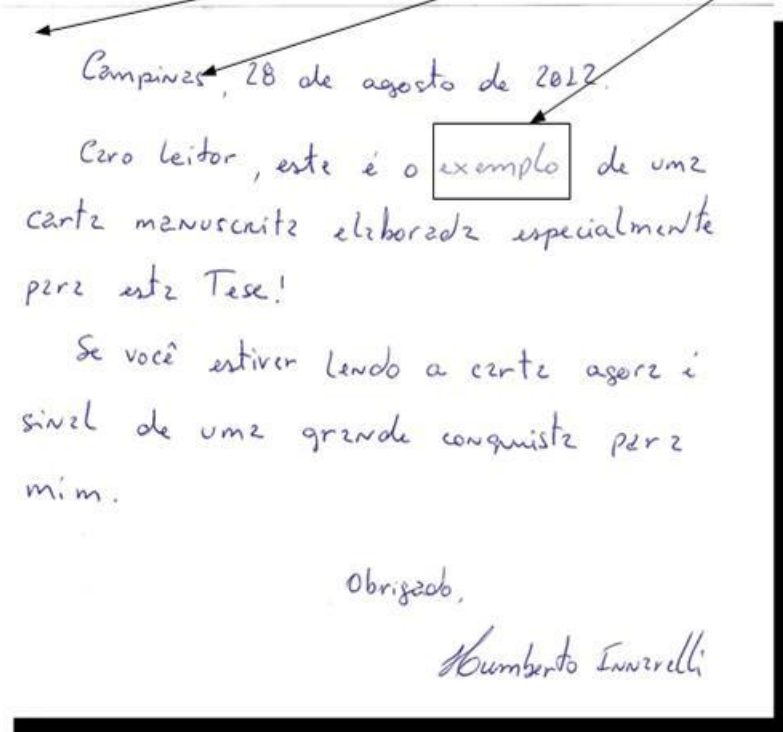 Campinas, 28 de agosto de 2012.
Caro leitor, este é o exemplo de uma
carta manuscrita elaborada especialmente
para esta Tese!
Se você estiver lendo a carta agora é
sinal de uma grande conquista para
mim.
Obrigado,
Humberto Innarelli